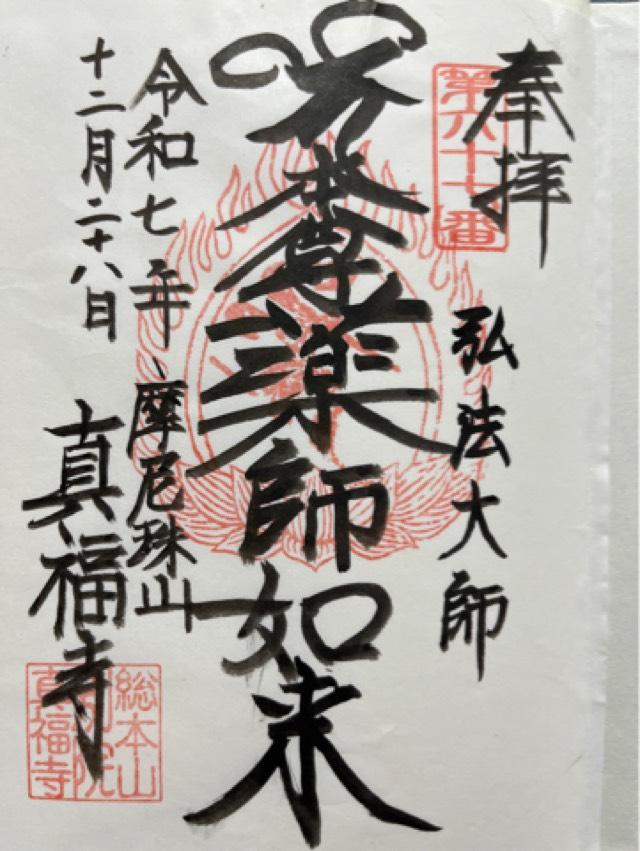 奉拝
第六十七番
弘法大師
本尊薬師如来
令和七年
十二月二十八日
摩尼珠山
真福寺
総本山
別院
真福寺